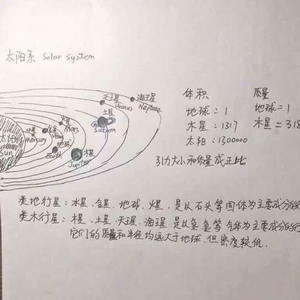 太阳系 Solar system
天王星 Uranus
海王星 Neptune
土星 Saturn
木星 Jupiter
地球 Earth
火星 Mars
水星 Mercury
太阳 Sun
体积
地球:1
木星:1317
太阳:1300000
质量
地球:1
木星:318
引力大小和质量成正比
类地行星:水星、金星、地球、火星,是以石头等固体为主要成分的
类木行星:木星、土星、天王星、海王星是以氢、氦等气体为主要成分的
它们的质量和半径均远大于地球,但密度较低.